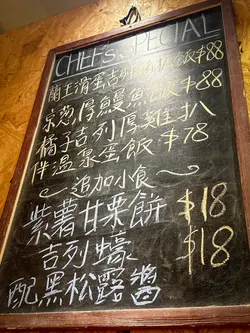 CHEF'S SPECIAL
蘭王滑蛋吉列豬扒飯$88
京蔥厚鰻魚飯$88
橘子吉列厚雞扒
伴溫泉蛋飯 $78
～追加小食～
紫薯甘栗餅 $18
吉列蠔 $18
配黑松露醬